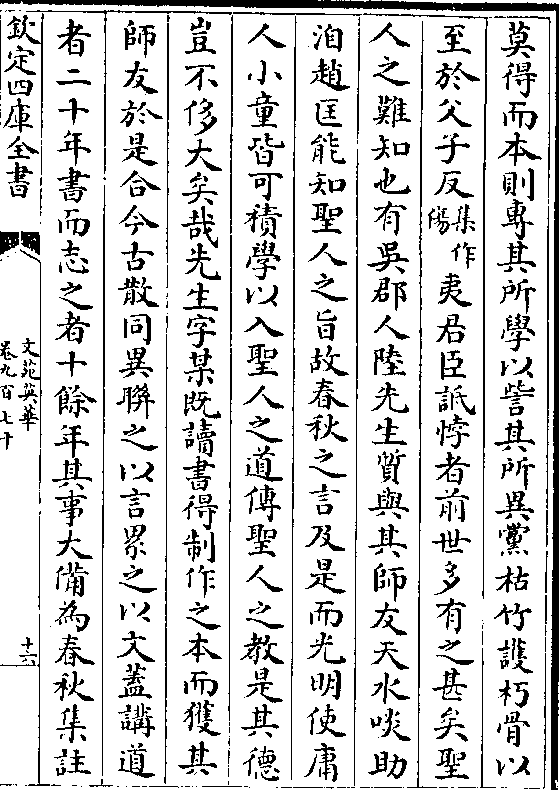 莫得而本則專其所學以訾其所異黨枯竹護朽骨以
至於父子反集作傷夷君臣詆悖者前世多有之甚矣聖
人之難知也有吳郡人陸先生質與其師友天水啖助
洎趙匡能知聖人之旨故春秋之言及是而光明使庸
人小童皆可積學以入聖人之道傳聖人之教是其德
豈不侈大矣哉先生字某既讀書得制作之本而獲其
師友於是合今古散同異聯之以言累之以文蓋講道
者二十年書而志之者十餘年其事大備為春秋集註
欽定四庫全書
文苑英華
卷九百七十
十六